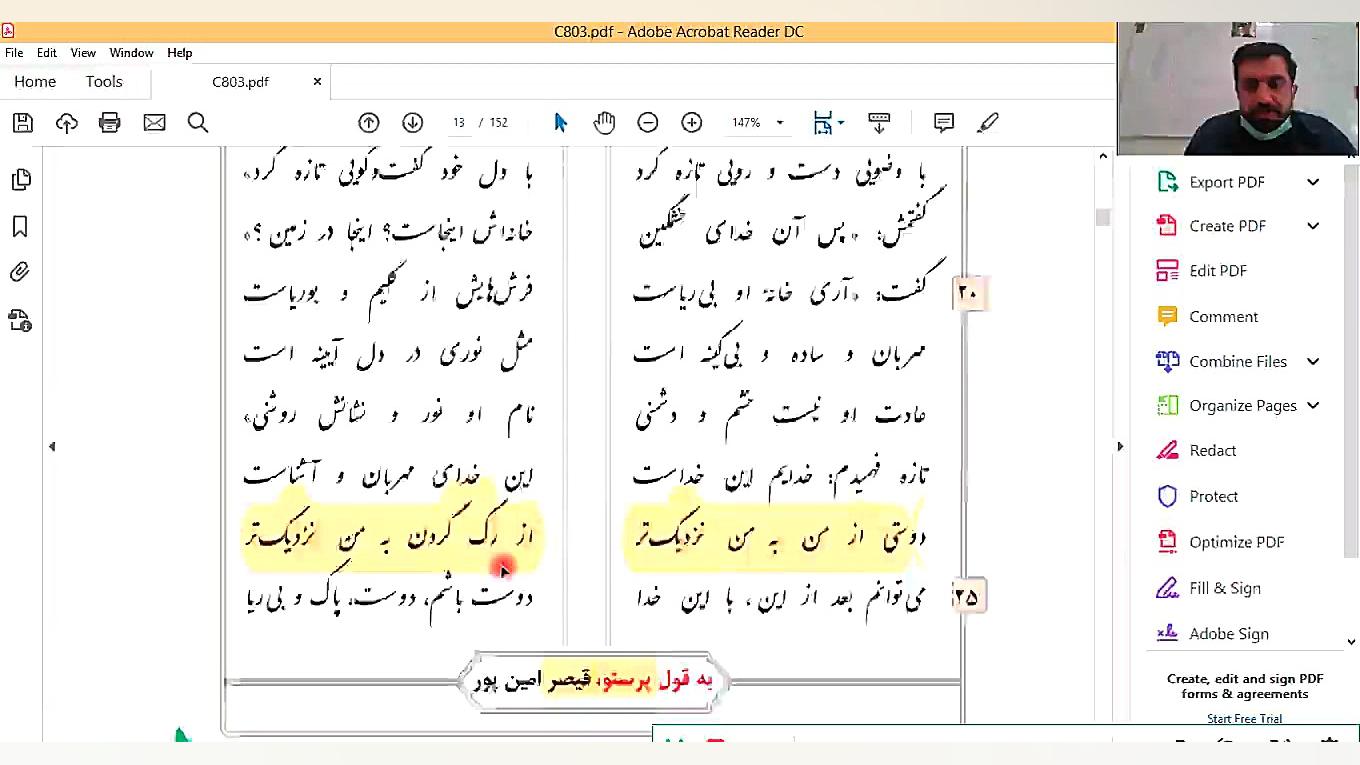 C803.pdf - Adobe Acrobat Reader DC
File Edit View Window Help
Home Tools C803.pdf ×
13 / 152 147%
با وضویی دست و رویی تازه کرد با دل خود گفت‌وگویی تازه کرد»
گفتمش: «پس آن خدای خشمگین خانه‌اش اینجاست؟ اینجا در زمین؟»
۲۰ گفت: «آری خانهٔ او بی‌ریاست فرش‌هایش از گلیم و بوریاست
مهربان و ساده و بی‌کینه است مثل نوری در دل آیینه است
عادت او نیست خشم و دشنی نام او نور و نشانش روشنی»
تازه فهمیدم: خدایم این خداست این خدای مهربان و آشناست
دوستی از من به من نزدیک‌تر از رگ گردن به من نزدیک‌تر
۲۵ می‌توانم بعد از این، با این خدا دوست باشم، دوست، پاک و بی‌ریا
به قول پرستو، قیصر امین پور
Export PDF
Create PDF
Edit PDF
Comment
Combine Files
Organize Pages
Redact
Protect
Optimize PDF
Fill & Sign
Adobe Sign
Create, edit and sign PDF
forms & agreements
Start Free Trial